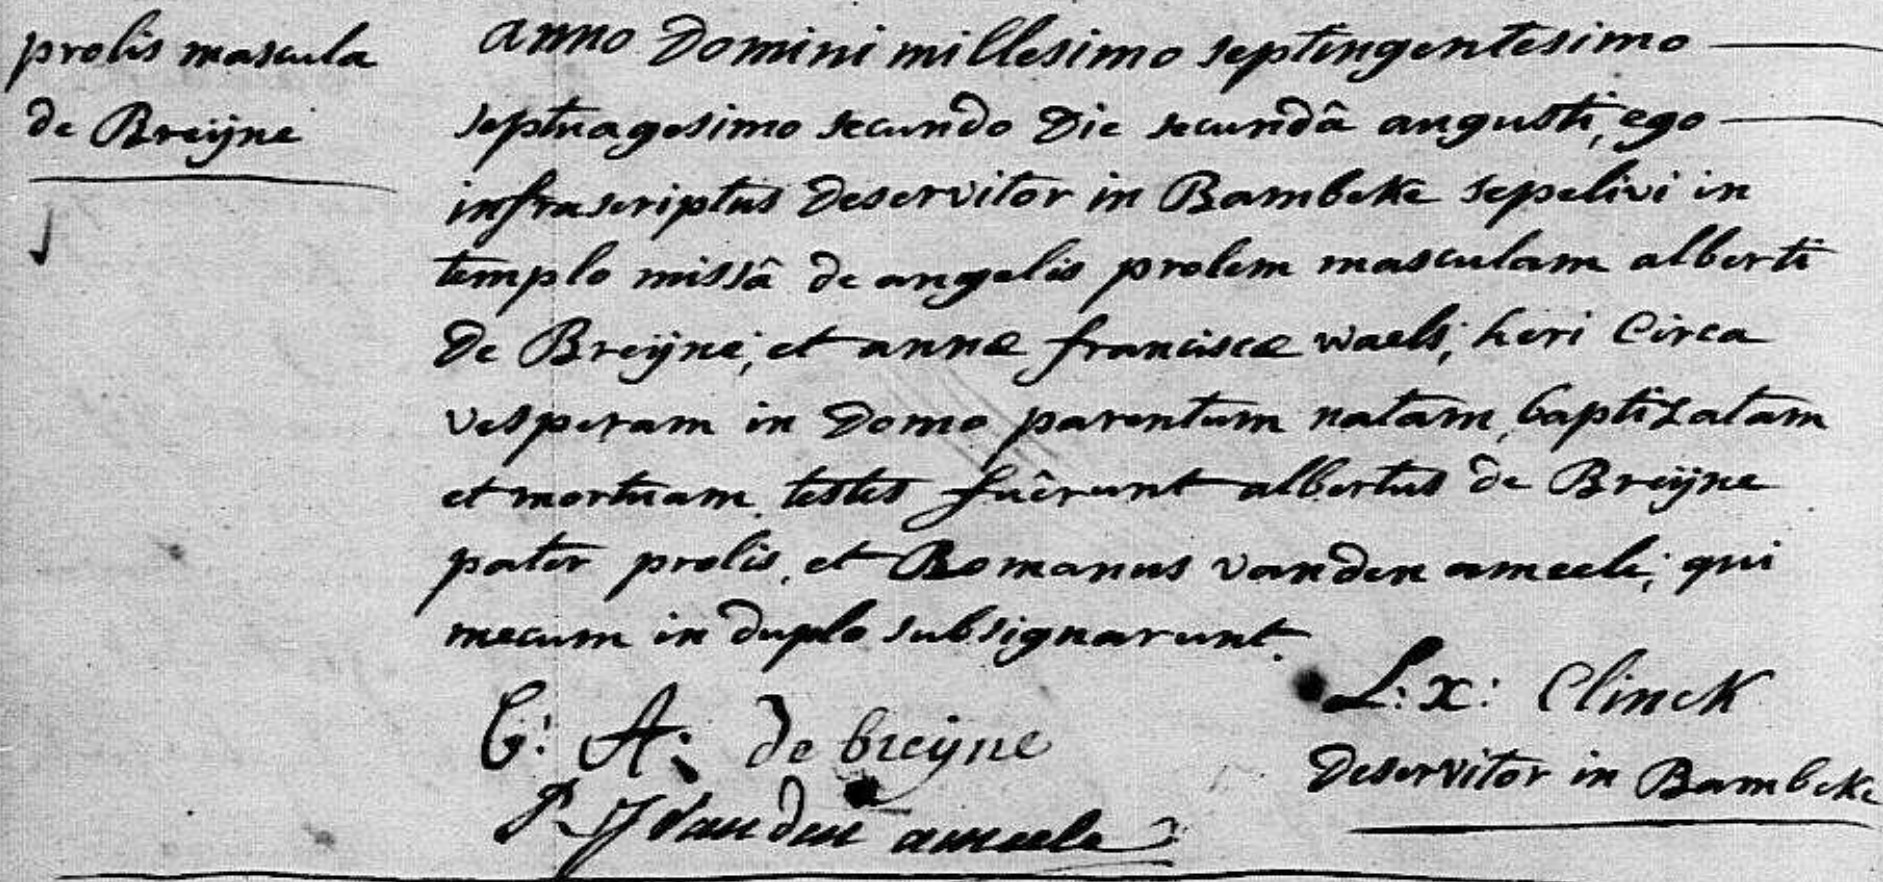 prolis mascula
de Breÿne
anno Domini millesimo septingentesimo
septuagesimo secundo Die secundâ augusti, ego
infrascriptus Deservitor in Bambeke sepelivi in
templo missâ de angelis prolem masculam alberti
De Breÿne, et annæ franciscæ waels, heri Circa
vesperam in Domo parentum natam, baptizatam
et mortuam. testes fuêrunt albertus de Breÿne
pater prolis, et Romanus vanden ameele, qui
mecum in duplo subsignarunt.
L: x: Clinck
Deservitor in Bambeke
A: de breÿne
vanden ameele